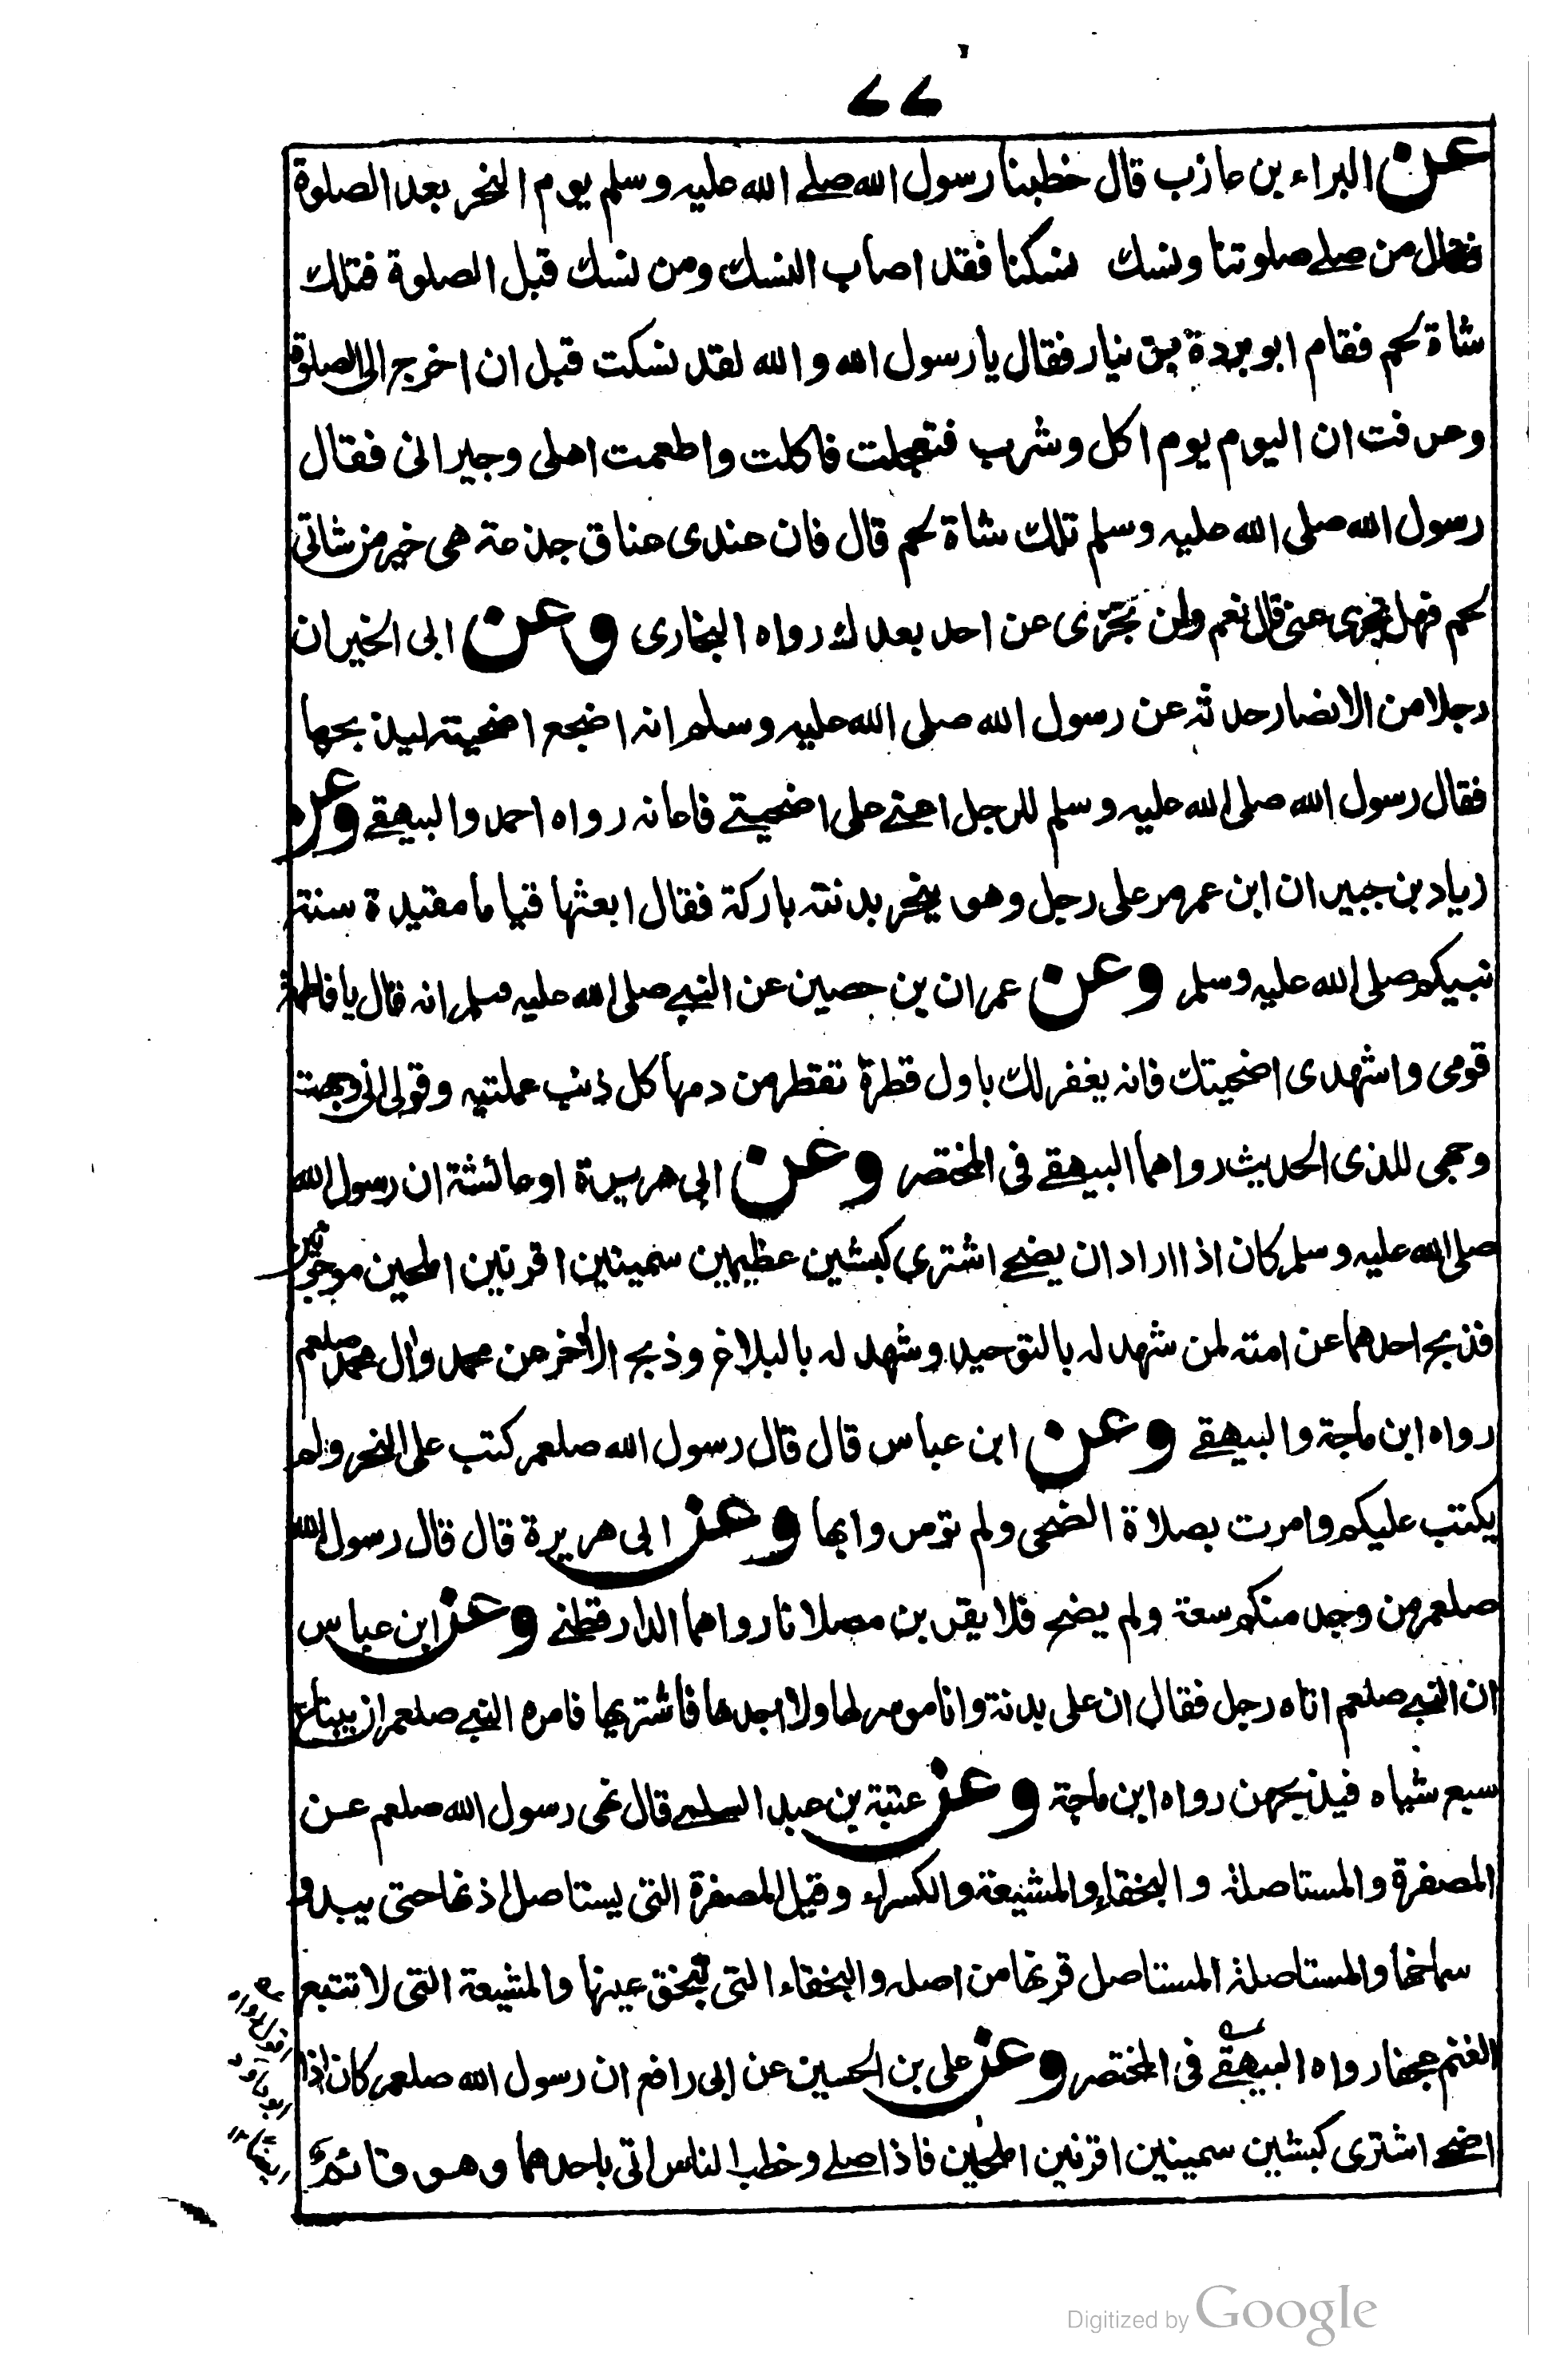 ٧٧
عن البراء بن عازب قال خطبنا رسول الله صلے الله عليه وسلم يوم النحر بعد الصلوة
فقال من صلے صلوتنا ونسك نسكنا فقد اصاب النسك ومن نسك قبل الصلوة فتلك
شاة لحم فقام ابو بردة بن نيار فقال يا رسول الله والله لقد نسكت قبل ان اخرج الى الصلوة
وعرفت ان اليوم يوم اكل وشرب فتعجلت فاكلت واطعمت اهلى وجيرانى فقال
رسول الله صلى الله عليه وسلم تلك شاة لحم قال فان عندى عناق جذعة هى خير من شاتى
لحم فهل تجزى عنى قال نعم ولن تجزى عن احد بعدك رواه البخارى وعن ابى الخير ان
رجلا من الانصار حدثه عن رسول الله صلى الله عليه وسلم انه اضجع اضحيته ليذبحها
فقال رسول الله صلى الله عليه وسلم للرجل اعنے على اضحيتے فاعانه رواه احمد والبيهقے وعن
زياد بن جبير ان ابن عمر مر على رجل وهو ينحر بدنته باركة فقال ابعثها قياما مقيدة سنة
نبيكم صلى الله عليه وسلم وعن عمران بن حصين عن النبے صلى الله عليه وسلم انه قال يا فاطمة
قومى واشهدى اضحيتك فانه يغفر لك باول قطرة تقطر من دمها كل ذنب عملتيه وقولى انى وجهت
وجهى للذى الحديث رواهما البيهقے فى المختصر وعن ابى هريرة او عائشة ان رسول الله
صلى الله عليه وسلم كان اذا اراد ان يضحے اشترى كبشين عظيمين سمينين اقرنين املحين موجوئين
فذبح احدهما عن امته لمن شهد له بالتوحيد وشهد له بالبلاغ وذبح الاخر عن محمد وال محمد صلعم
رواه ابن ماجة والبيهقے وعن ابن عباس قال قال رسول الله صلعم كتب على النحر ولم
يكتب عليكم وامرت بصلاة الضحى ولم تومروا بها وعن ابى هريرة قال قال رسول الله
صلعم من وجد منكم سعة ولم يضح فلا يقربن مصلانا رواهما الدارقطنے وعن ابن عباس
ان النبے صلعم اتاه رجل فقال ان على بدنة وانا موسر لها ولا اجدها فاشتريها فامره النبے صلعم ان يبتاع
سبع شياه فيذبحهن رواه ابن ماجة وعن عتبة بن عبد السلمے قال نهى رسول الله صلعم عن
المصفرة والمستاصلة والبخقاء والمشيعة والكسراء وقيل المصفرة التى يستاصل اذنها حتى يبدو
سماخها والمستاصلة المستاصل قرنها من اصله والبخقاء التى تبخق عينها والمشيعة التى لا تتبع
الغنم عجفا رواه البيهقے فى المختصر وعن على بن الحسين عن ابى رافع ان رسول الله صلعم كان اذا
اضحے اشترى كبشين سمينين اقرنين املحين فاذا صلے وخطب الناس اتى باحدهما وهو قائم
Digitized by Google